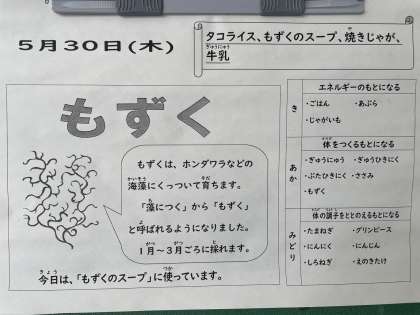 5月30日(木)
タコライス、もずくのスープ、焼きじゃが、
牛乳
もずく
もずくは、ホンダワラなどの
海藻にくっついて育ちます。
「藻につく」から「もずく」
と呼ばれるようになりました。
1月～3月ごろに採れます。
今日は、「もずくのスープ」に使っています。
き
エネルギーのもとになる
・ごはん ・あぶら
・じゃがいも
あか
体をつくるもとになる
・ぎゅうにゅう ・ぎゅうひきにく
・ぶたひきにく ・ささみ
・もずく
みどり
体の調子をととのえるもとになる
・たまねぎ ・グリンピース
・にんにく ・にんじん
・しろねぎ ・えのきたけ